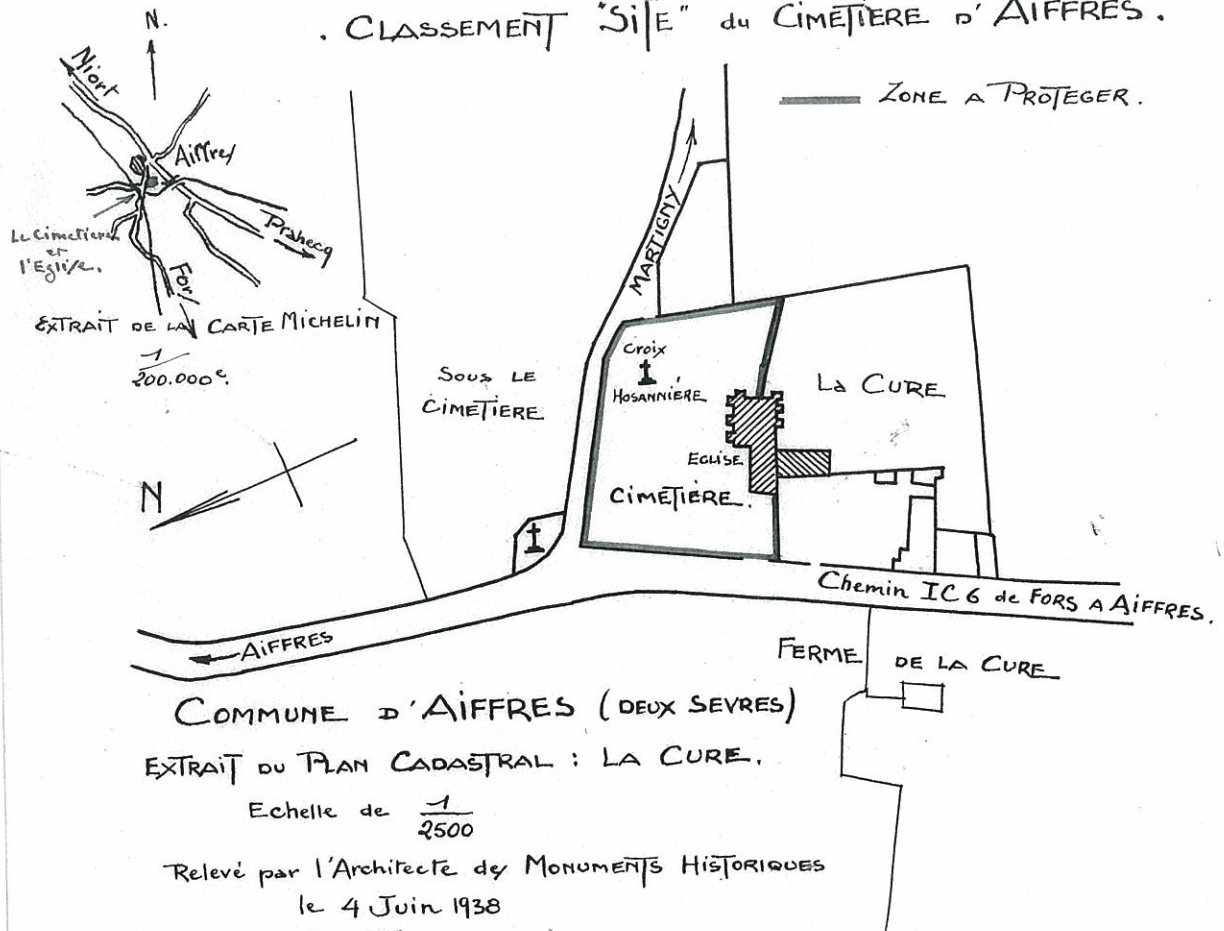 . CLASSEMENT "SITE" du CIMETIERE D'AIFFRES .
N.
Niort
Aiffres
Prahecq
Fors
Le Cimetiere
et
l'Eglise.
EXTRAIT DE LA CARTE MICHELIN
1/200.000e.
ZONE A PROTEGER .
MARTIGNY
SOUS LE
CIMETIERE
Croix
HOSANNIÈRE
LA CURE
EGLISE
CIMETIÈRE.
N
Chemin IC 6 de FORS A AIFFRES.
AIFFRES
FERME DE LA CURE
COMMUNE D'AIFFRES (DEUX SEVRES)
EXTRAIT DU PLAN CADASTRAL : LA CURE.
Echelle de 1/2500
Relevé par l'Architecte des MONUMENTS HISTORIQUES
le 4 Juin 1938